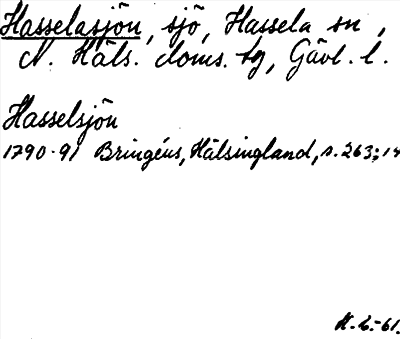 Hasselasjön, sjö, Hassela sn,
N. Häls. doms. tg, Gävl. l.
Hasselsjön
1790-91 Bringéus, Hälsingland, s. 263;